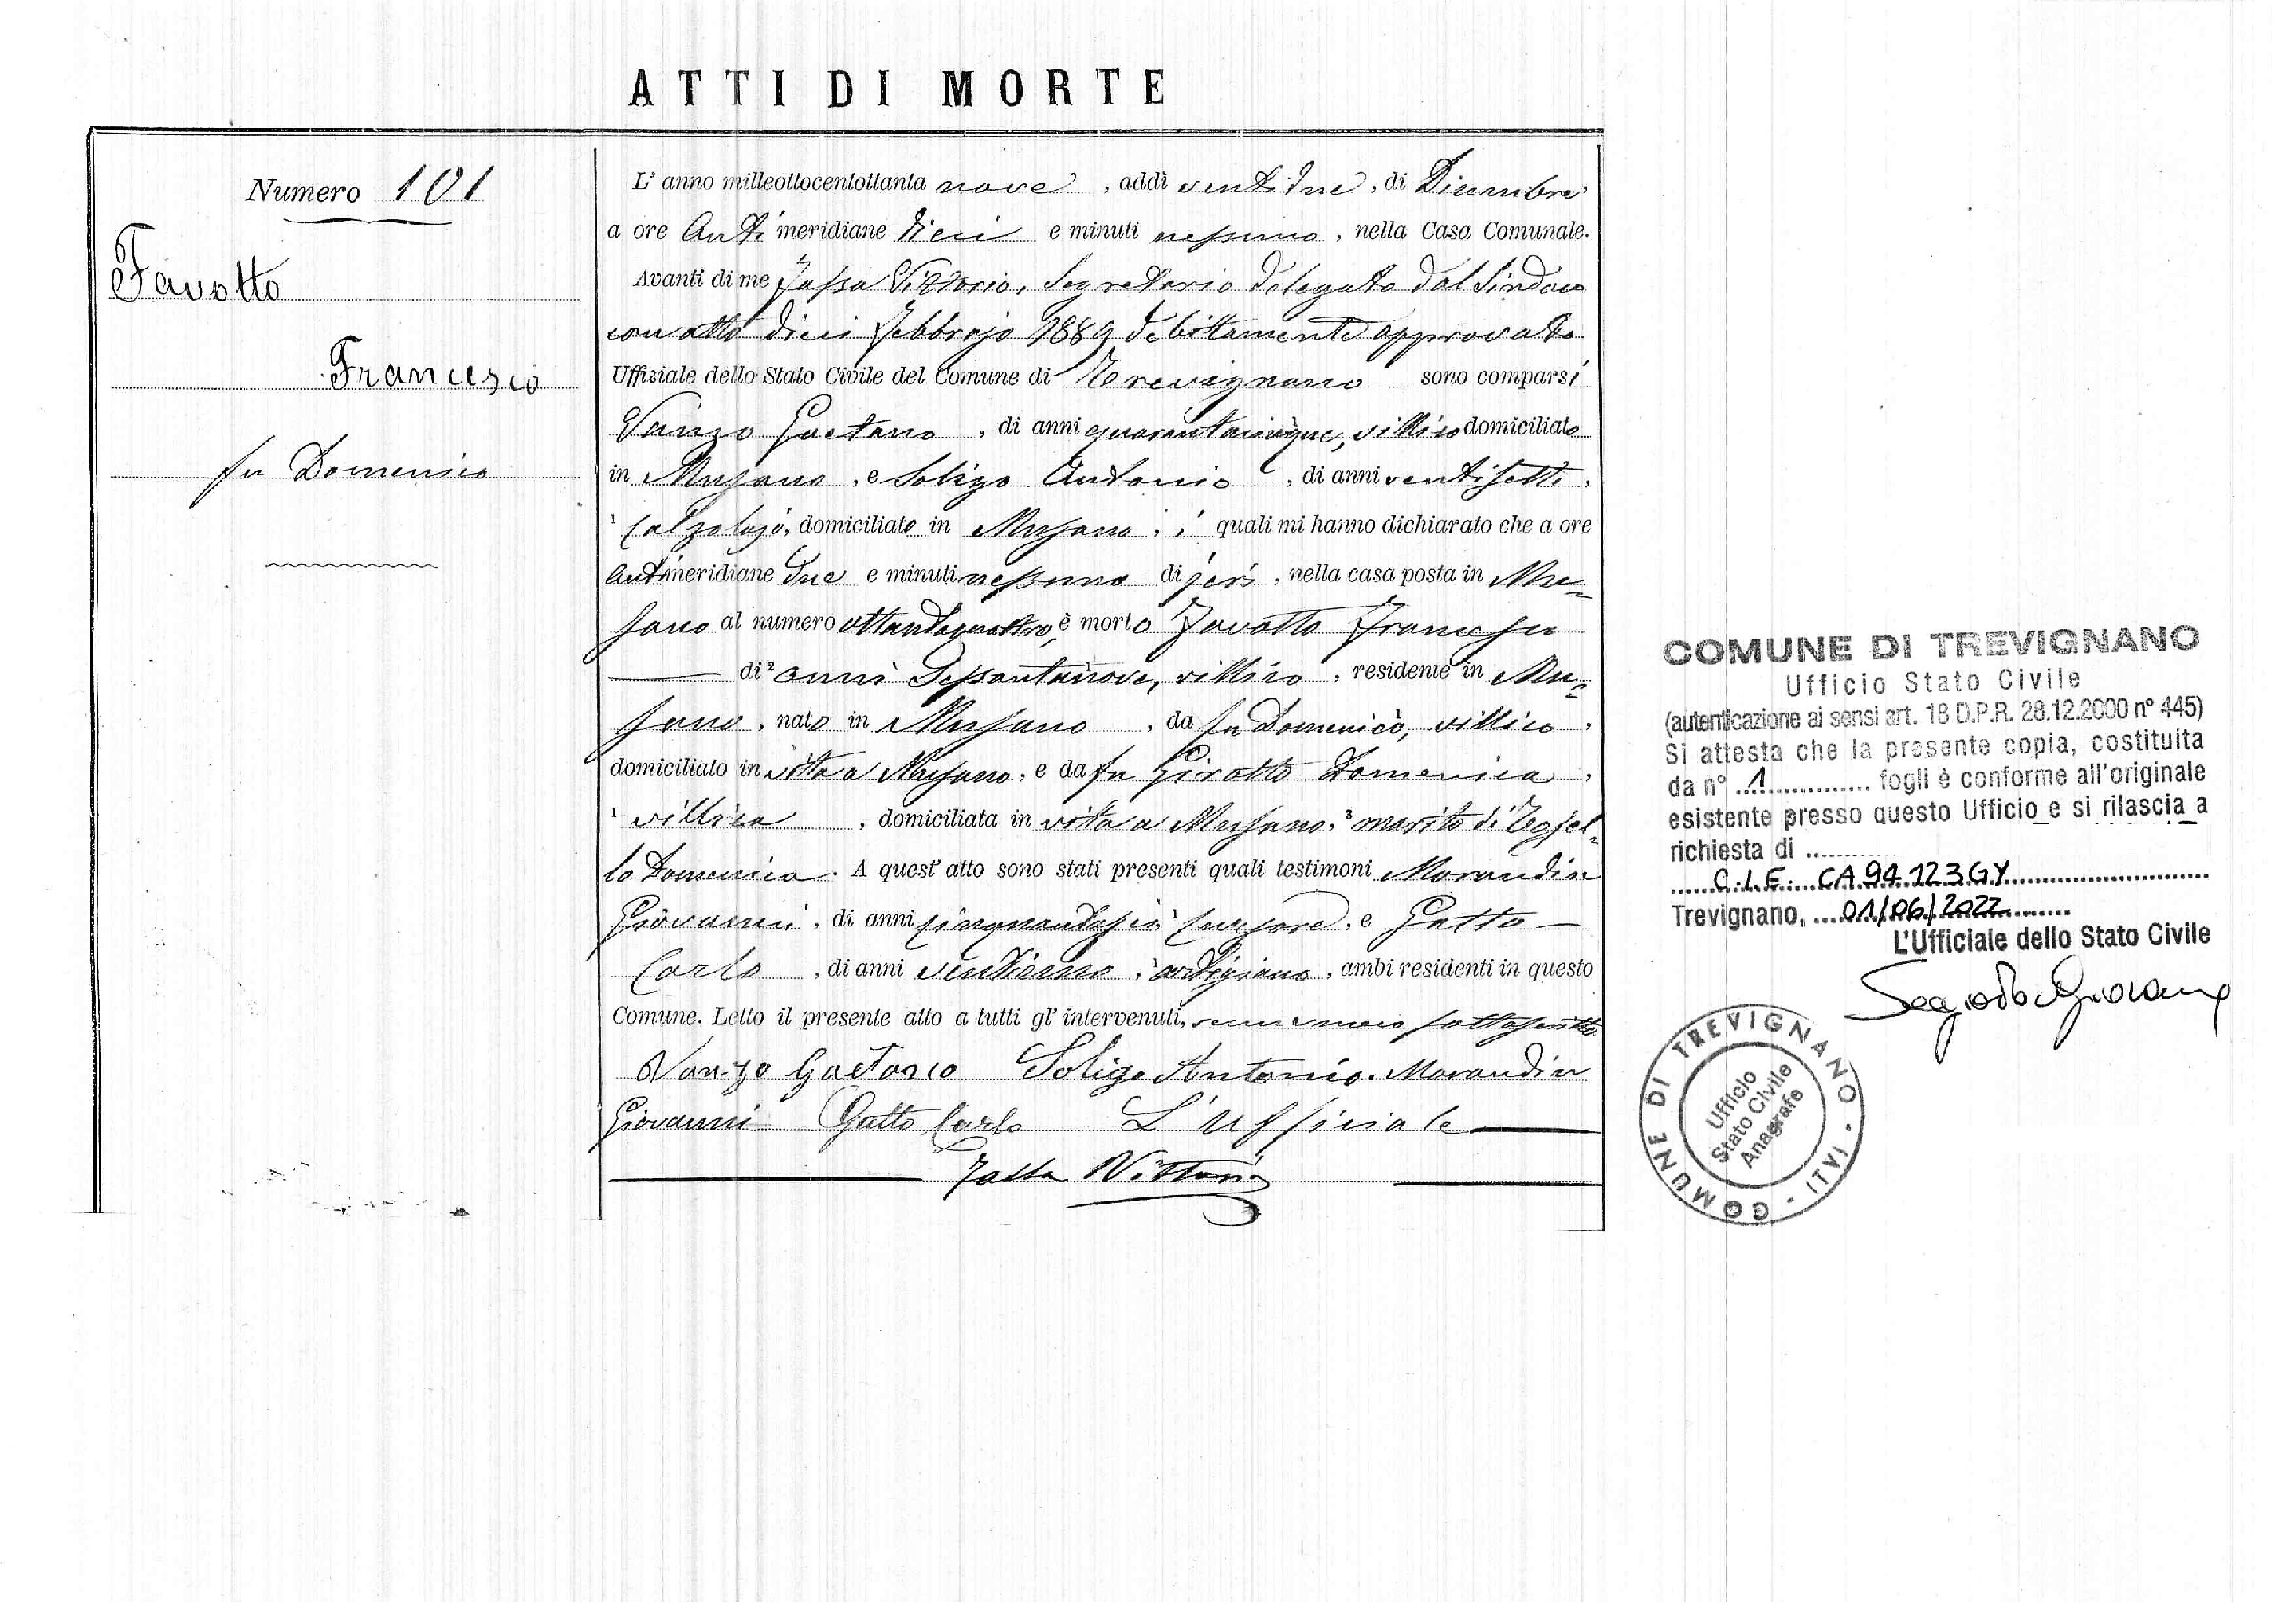 ATTI DI MORTE
Numero 101
Favotto
Francesco
fu Domenico
L' anno milleottocentottanta nove, addì ventidue, di Dicembre
a ore Anti meridiane dieci e minuti nessuno, nella Casa Comunale.
Avanti di me Vittorio, Segretario delegato dal Sindaco
con atto dieci Febbrajo 1889 debitamente approvato
Uffiziale dello Stato Civile del Comune di Trevignano sono comparsi
Vanzo Gaetano, di anni quarantacinque, villico domiciliato
in Musano, e Soligo Antonio, di anni ventisette,
¹ Calzolajo, domiciliato in Musano, i quali mi hanno dichiarato che a ore
antimeridiane due e minuti nessuno di jeri, nella casa posta in Mu=
sano al numero ottantaquattro, è morto Favotto Francesco
di ² anni Sessantanove, villico, residente in Mu=
sano, nato in Musano, da fu Domenico, villico,
domiciliato in vita a Musano, e da fu Girotto Domenica,
¹ villica, domiciliata in vita a Musano, ³ marito di Tosel=
lo Domenica. A quest' atto sono stati presenti quali testimoni Morandin
Giovanni, di anni cinquantasei, ¹ Cursore, e Gatto
Carlo, di anni ventiuno, ¹ artigiano, ambi residenti in questo
Comune. Letto il presente atto a tutti gl' intervenuti, sottoscritto
Vanzo Gaetano Soligo Antonio. Morandin
Giovanni Gatto Carlo L'Uffiziale
Vittorio
COMUNE DI TREVIGNANO
Ufficio Stato Civile
(autenticazione ai sensi art. 18 D.P.R. 28.12.2000 n° 445)
Si attesta che la presente copia, costituita
da n° 1 fogli è conforme all'originale
esistente presso questo Ufficio e si rilascia a
richiesta di
C.I.E. CA94123GY
Trevignano, 01/06/2022
L'Ufficiale dello Stato Civile
COMUNE DI TREVIGNANO - (A11) -
Ufficio
Stato Civile
Anagrafe